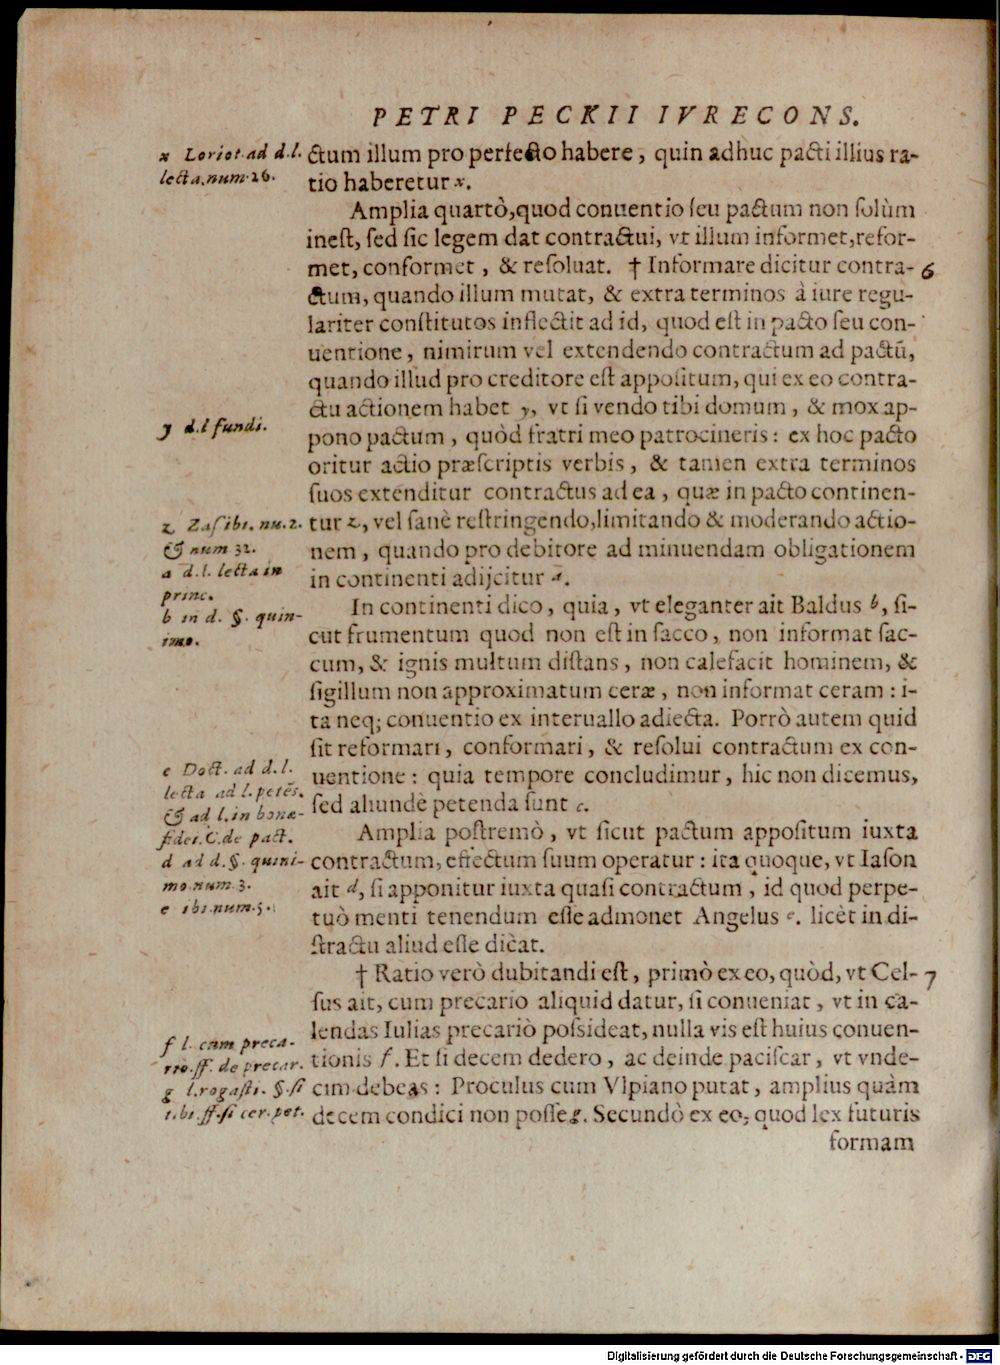 PETRI PECKII IVRECONS.
x Loriot. ad d. l.
lecta. num. 26.
ctum illum pro perfecto habere, quin adhuc pacti illius ra-
tio haberetur x.
Amplia quartò, quod conuentio seu pactum non solùm
inest, sed sic legem dat contractui, vt illum informet, refor-
met, conformet, & resoluat. † Informare dicitur contra-
6
ctum, quando illum mutat, & extra terminos à iure regu-
lariter constitutos inflectit ad id, quod est in pacto seu con-
uentione, nimirum vel extendendo contractum ad pactũ,
quando illud pro creditore est appositum, qui ex eo contra-
ctu actionem habet y, vt si vendo tibi domum, & mox ap-
y d. l fundi.
pono pactum, quòd fratri meo patrocineris: ex hoc pacto
oritur actio præscriptis verbis, & tamen extra terminos
suos extenditur contractus ad ea, quæ in pacto continen-
z Zas ibi. nu. 2.
& num 32.
a d. l. lecta in
princ.
b in d. §. quin-
imo.
tur z, vel sanè restringendo, limitando & moderando actio-
nem, quando pro debitore ad minuendam obligationem
in continenti adijcitur a.
In continenti dico, quia, vt eleganter ait Baldus b, si-
cut frumentum quod non est in sacco, non informat sac-
cum, & ignis multum distans, non calefacit hominem, &
sigillum non approximatum ceræ, non informat ceram: i-
ta neq; conuentio ex interuallo adiecta. Porrò autem quid
sit reformari, conformari, & resolui contractum ex con-
c Doct. ad d. l.
lecta ad l. petẽs.
& ad l. in bonæ-
fidei. C. de pact.
d ad d. §. quini-
mo. num 3.
e ibi. num. 5.
uentione: quia tempore concludimur, hic non dicemus,
sed aliundè petenda sunt c.
Amplia postremò, vt sicut pactum appositum iuxta
contractum, effectum suum operatur: ita quoque, vt Iason
ait d, si apponitur iuxta quasi contractum, id quod perpe-
tuò menti tenendum esse admonet Angelus e. licèt in di-
stractu aliud esse dicat.
† Ratio verò dubitandi est, primò ex eo, quòd, vt Cel-
7
sus ait, cum precario aliquid datur, si conueniat, vt in ca-
lendas Iulias precariò possideat, nulla vis est huius conuen-
f l. cum preca-
rio. ff. de precar.
g l. rogasti. §. si
tibi. ff. si cer. pet.
tionis f. Et si decem dedero, ac deinde paciscar, vt vnde-
cim debeas: Proculus cum Vlpiano putat, amplius quàm
decem condici non posse g. Secundò ex eo, quod lex futuris
formam
Digitalisierung gefördert durch die Deutsche Forschungsgemeinschaft - DFG